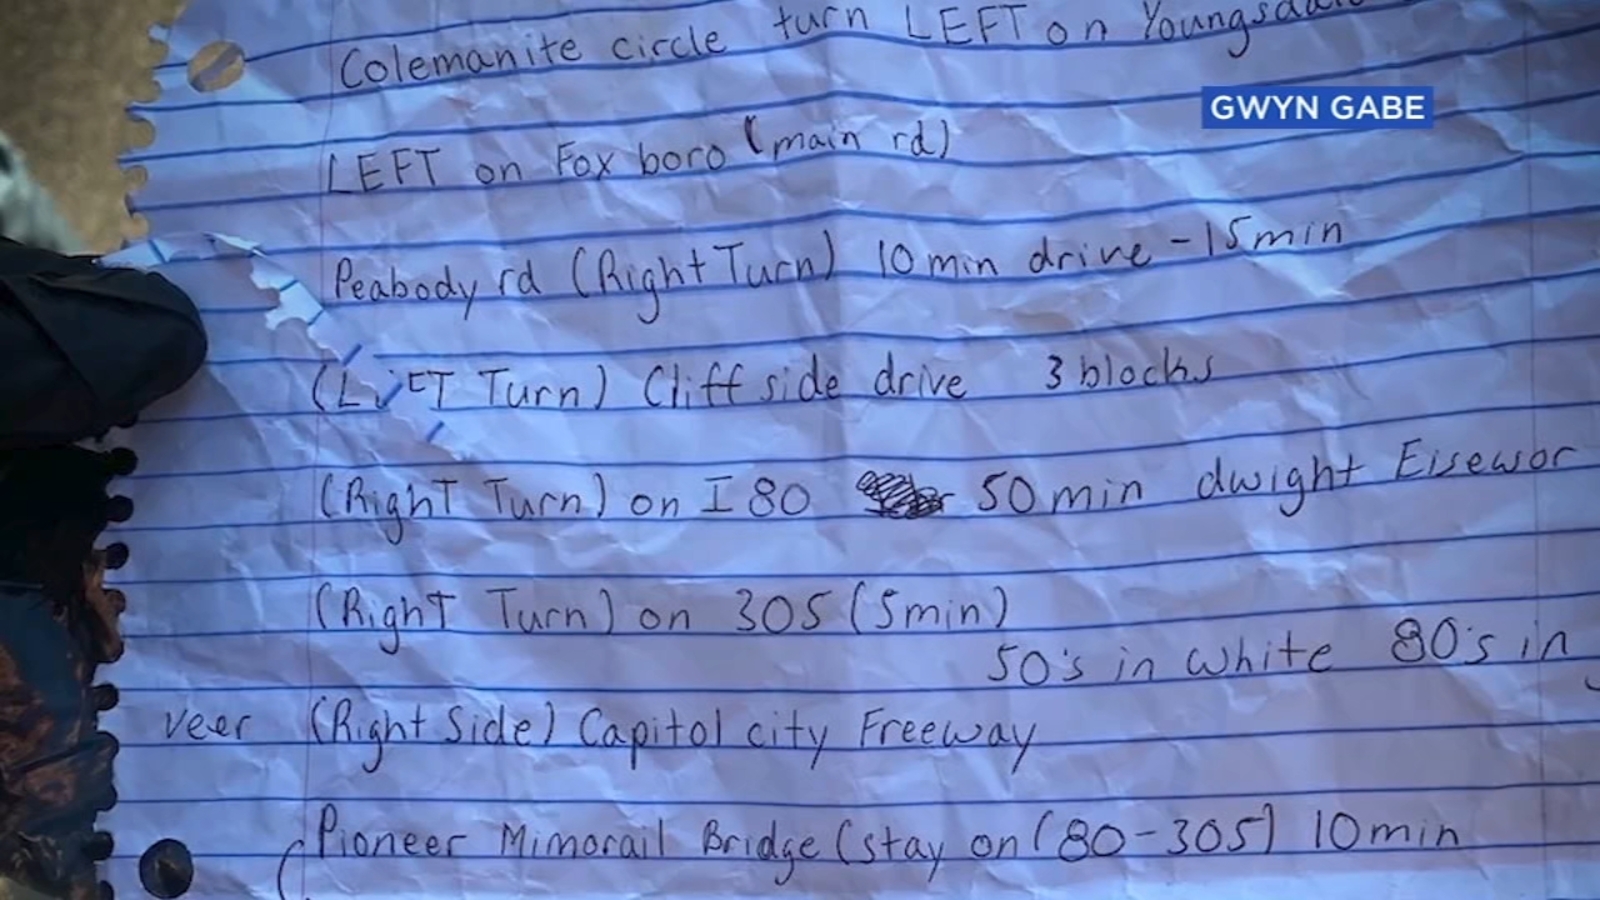 Colemanite circle turn LEFT on
GWYN GABE
LEFT on Fox boro (main rd)
Peabody rd (Right Turn) 10 min drive - 15 min
(LEFT Turn) Cliff side drive 3 blocks
(Right Turn) on I 80 50 min dwight Eisewor
(Right Turn) on 305 (5 min)
50's in white 80's in
veer (Right Side) Capitol city Freeway
Pioneer Mimorail Bridge (stay on (80-305) 10 min